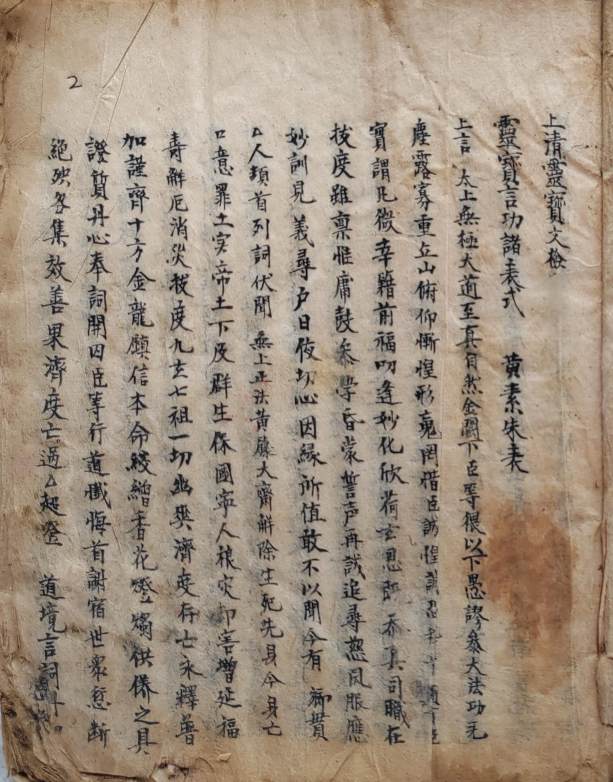 2
上清靈寳文檢
靈寳言功諸表式 黃素朱表
上言 太上無極大道至真自然金闕下臣等猥以下愚謬叅大法功无
塵露寡重丘山俯仰慚惶形䰟罔惜臣誠惶誠恐
實謂凡微幸籍前福叨逢妙化欣荷玄恩即忝真司職在
拔度雖禀惟庸鼓叅學昏蒙誓声再誡追尋恕夙服應
妙訓見義尋戶日伇切心因緣所值敢不以聞今有 鄉貫
厶人頴首列詞伏聞 無上正法黃籙大齋觧除生死先身今身亡
口意罪土安帝土下及群生保國寜人禳灾却害增延福
寿觧厄消災拔度九玄七祖一切幽爽濟度存亡永釋普
加謹齊十方金龍鎮信本命綾繒香花燈燭供俻之具
證質丹心奉詞開囚臣等行道懺悔首謝宿世衆愆断
絕殃咎集效善果濟度亡過厶超登 道境言詞